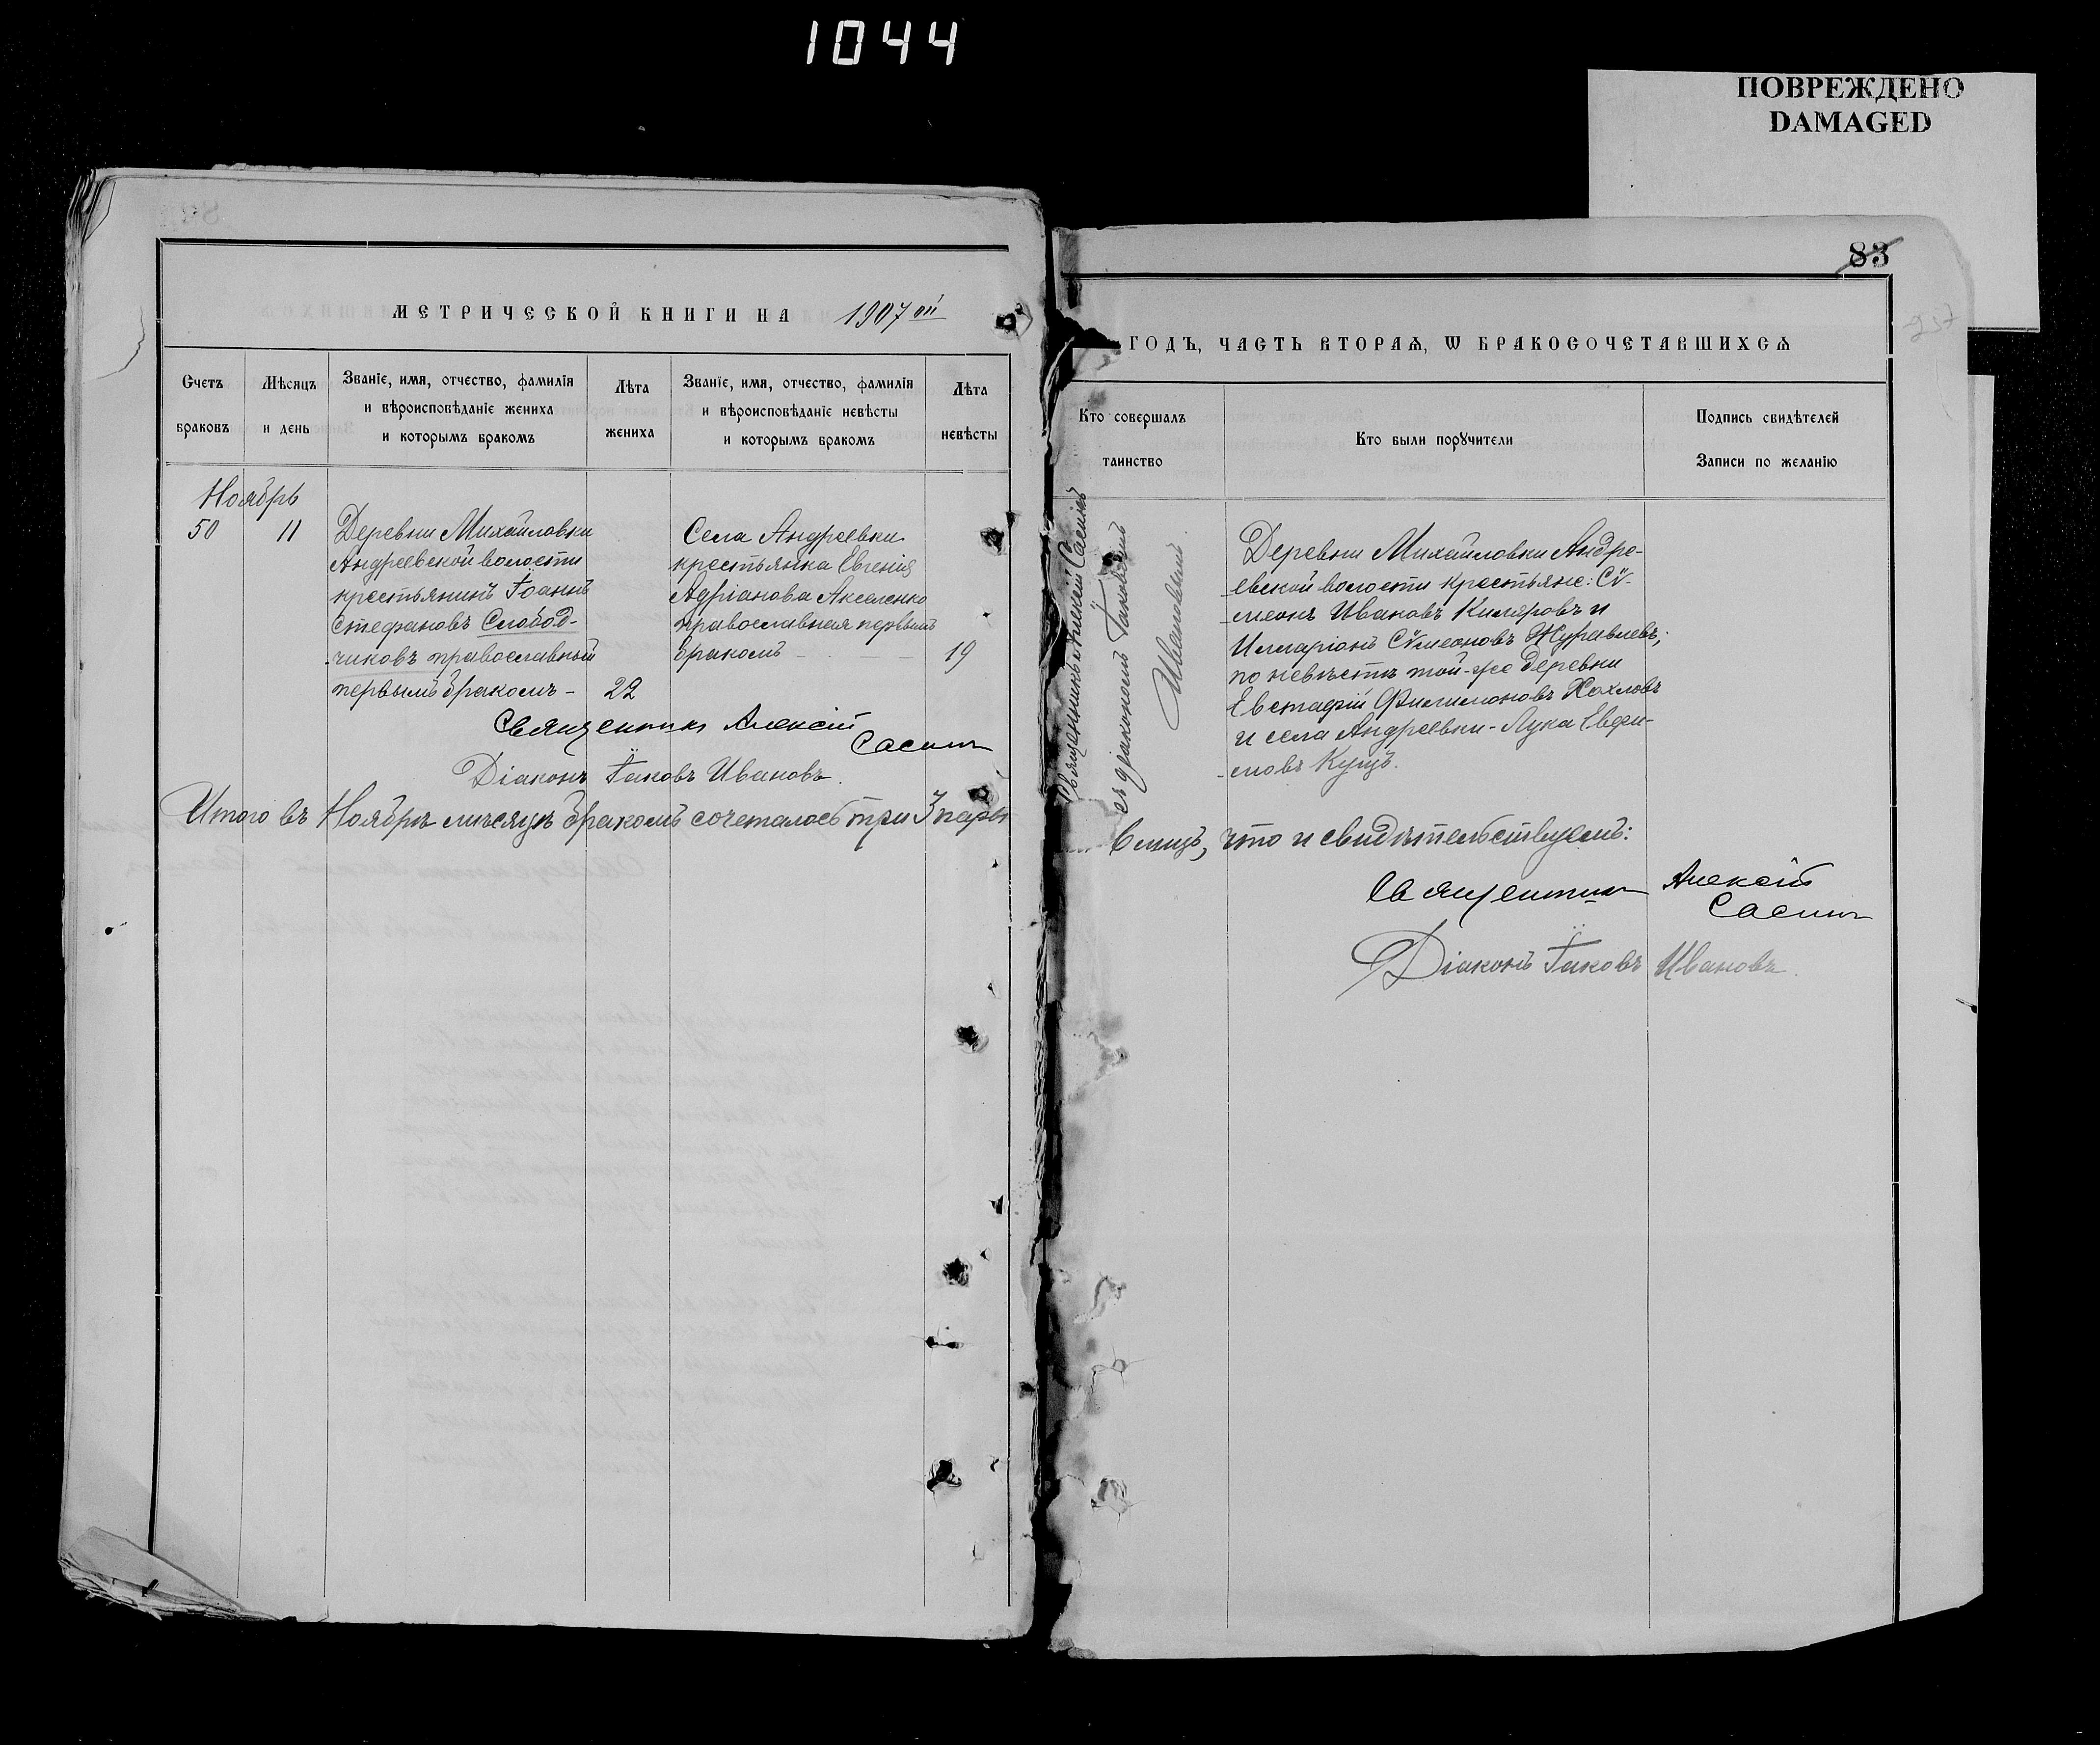 1044
ПОВРЕЖДЕНО
DAMAGED
МЕТРИЧЕСКОЙ КНИГИ НА 1907ой
Счетъ браковъ
Мѣсяцъ и день
Званіе, имя, отчество, фамилія
и вѣроисповѣданіе жениха
и которымъ бракомъ
Лѣта жениха
Званіе, имя, отчество, фамилія
и вѣроисповѣданіе невѣсты
и которымъ бракомъ
Лѣта невѣсты
Ноябрь
50
11
Деревни Михайловки
Андреевской волости
крестьянинъ Іоаннъ
Стефановъ Слобод-
чиковъ православный
первымъ бракомъ -
22
Села Андреевки
крестьянка Евгенія
Адріанова Акселенко
православная первымъ
бракомъ
19
Священникъ Алексій
Сасинъ
Діаконъ Іаковъ Ивановъ.
Итого въ Ноябрѣ мѣсяцѣ бракомъ сочеталось три 3 пары
83
ГОДЪ, ЧАСТЬ ВТОРАѦ, Ѡ БРАКОСОЧЕТАВШИХСѦ
Кто совершалъ
таинство
Кто были порꙋчители
Подпись свидѣтелей
Записи по желанію
Священникъ Алексій Сасинъ
съ діакономъ Іаковомъ
Ивановымъ
Деревни Михайловки Андре-
евской волости крестьяне: Сѵ-
меонъ Ивановъ и
Илларіонъ Сѵмеоновъ Журавлевъ;
по невѣстѣ той-же деревни
Евстафій Филимоновъ Хохловъ
и села Андреевки - Лука Евфи-
мовъ Куцъ.
что и свидѣтельствуемъ:
Священникъ Алексій
Сасинъ
Діаконъ Іаковъ Ивановъ.